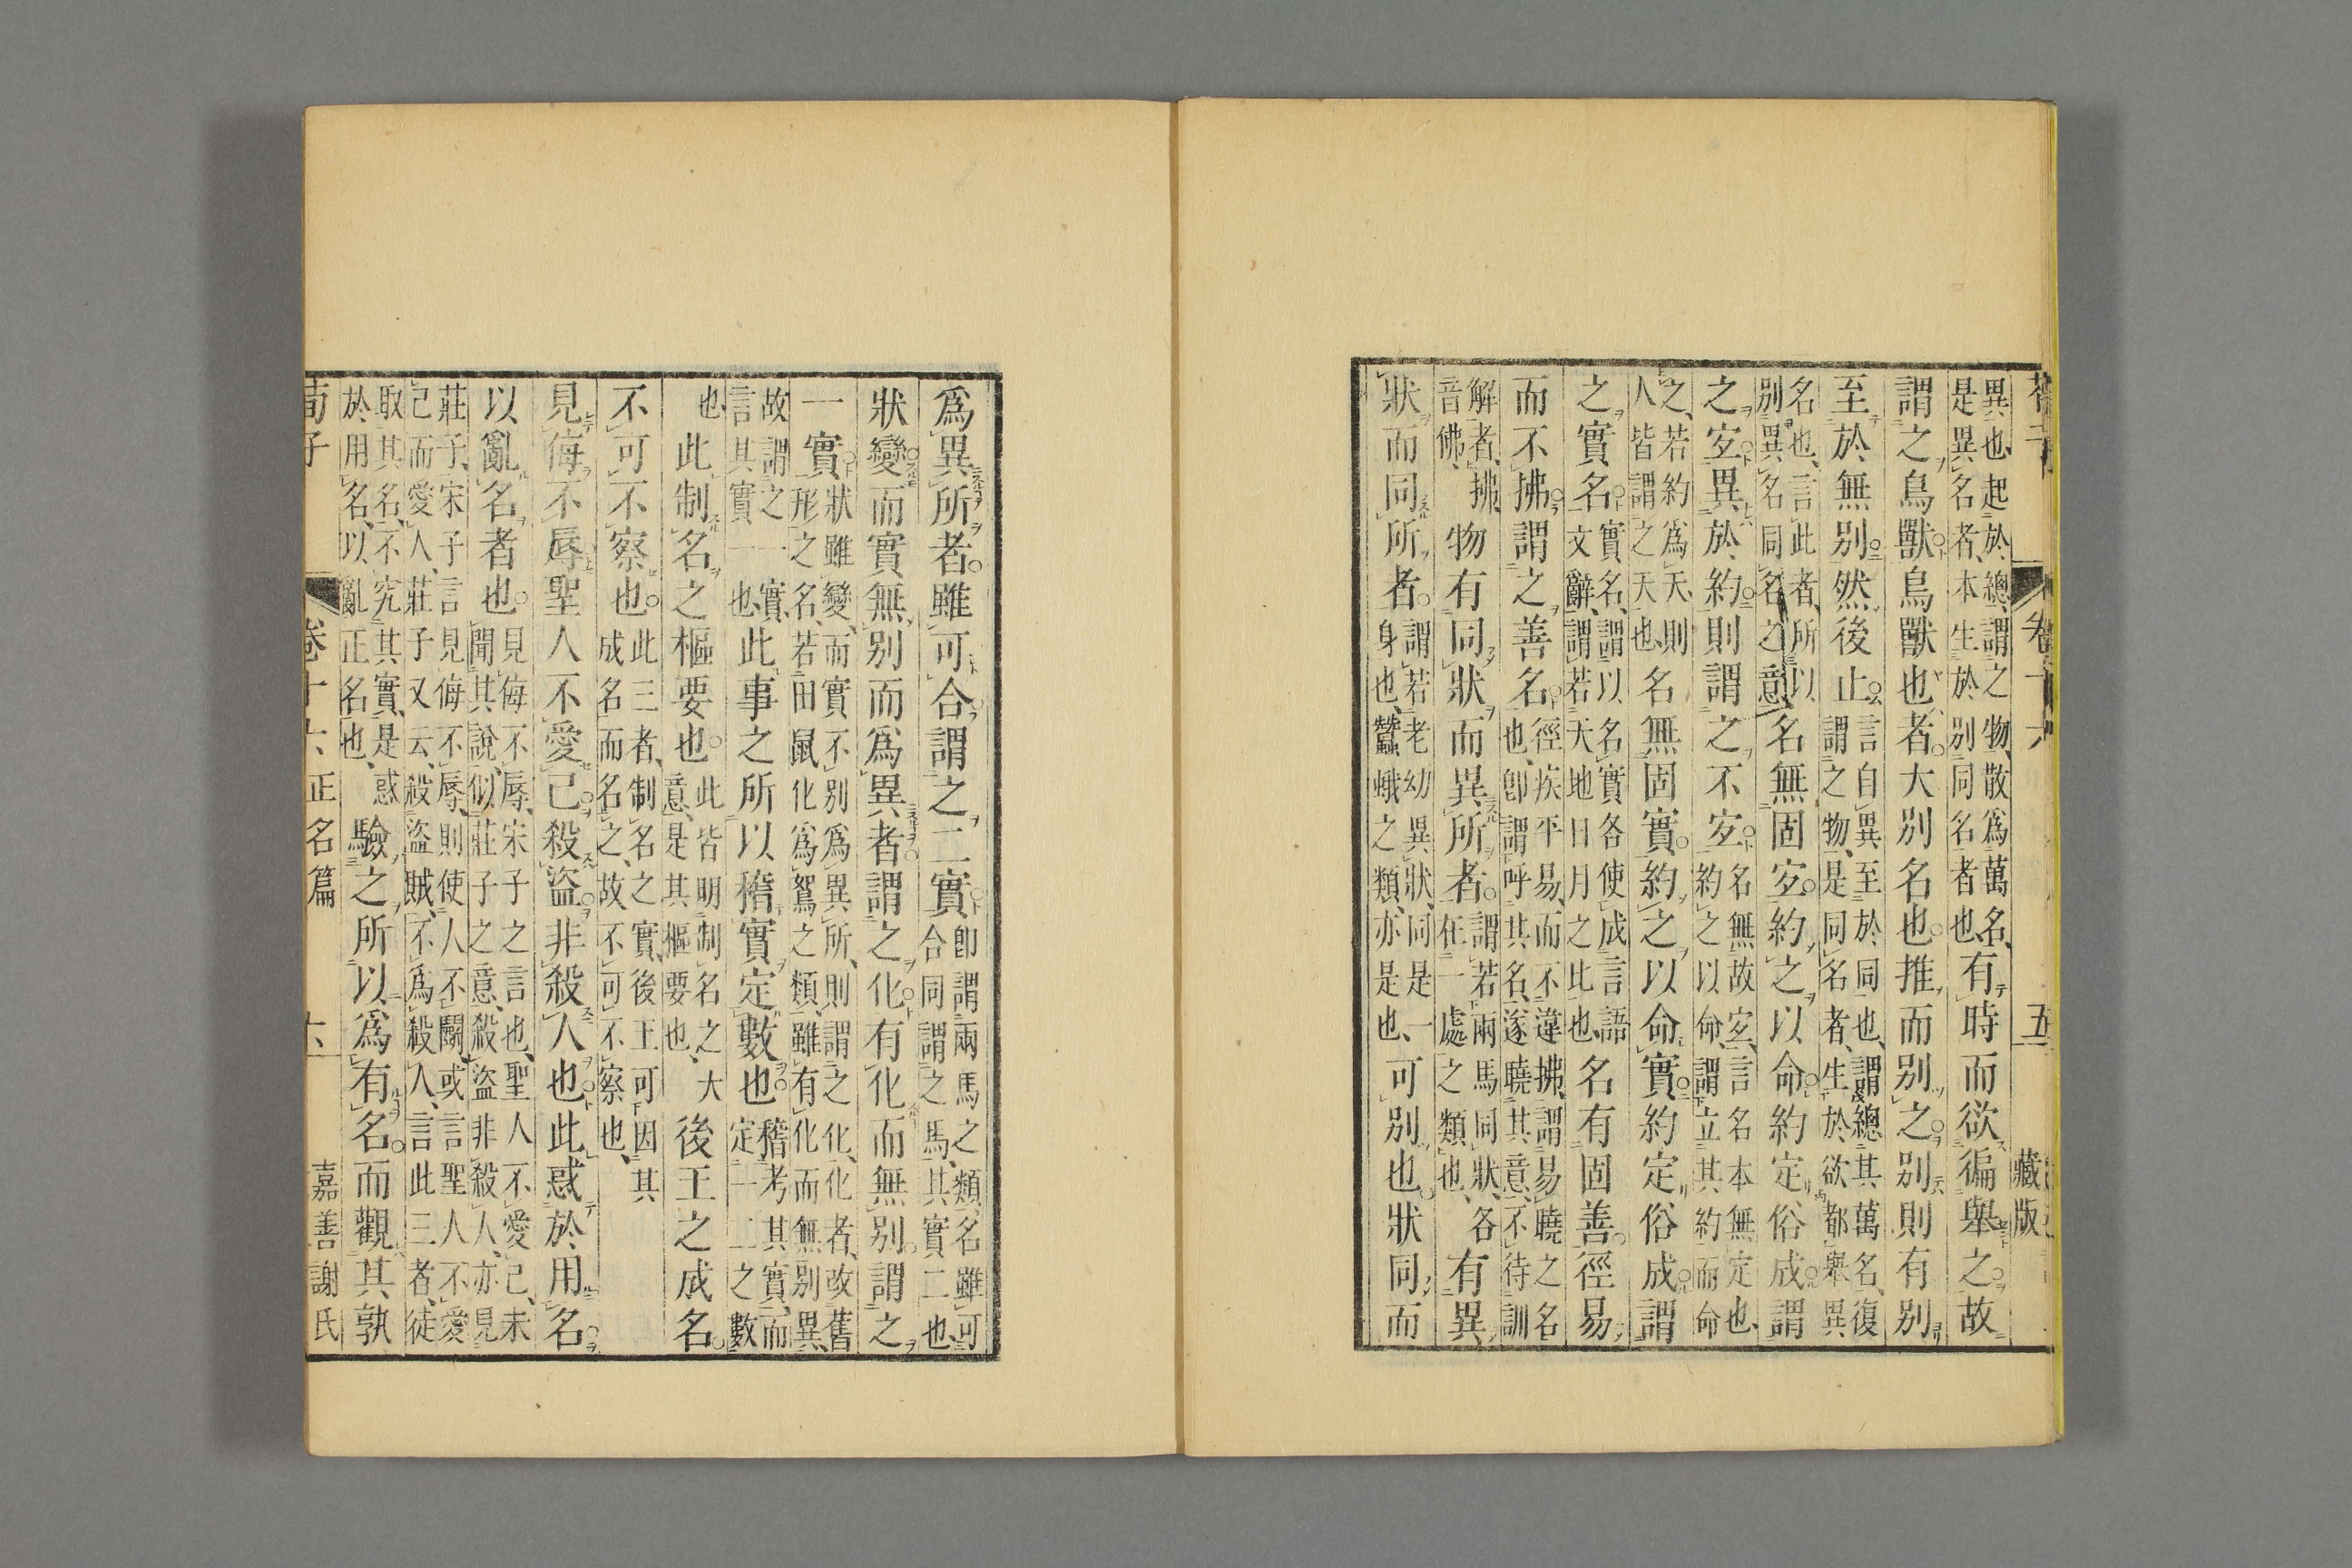 卷十六 五 藏版
異也起於總謂之物散爲萬名是異名者本生於别同名者也有時而欲徧舉之故
謂之鳥獸鳥獸也者大别名也推而别之别則有别
至於無别然後止言自異至於同也謂總其萬名復謂之物是同名者生於欲都舉異
名也言此者所以别異名同名之意名無固宐約之以命約定俗成謂
之宐異於約則謂之不宐名無故宐言名本無定也約之以命謂立其約而命
之若約爲天則人皆謂之天也名無固實約之以命實約定俗成謂
之實名實名謂以名實各使成言語文辭謂若天地日月之此也名有固善徑易
而不拂謂之善名徑疾平易而不違拂謂易曉之名也卽謂呼其名遂曉其意不待訓
解者拂音佛物有同狀而異所者謂若兩馬同狀各在一處之類也有異
狀而同所者謂若老幼異狀同是一身也蠶蛾之類亦是也可别也狀同而
爲異所者雖可合謂之二實卽謂兩馬之類名雖可合同謂之馬其實二也
狀變而實無别而爲異者謂之化有化而無别謂之
一實狀雖變而實不别爲異所則謂之化化者改舊形之名若田鼠化爲鴽之類雖有化而無别異
故謂之一實言其實一也此事之所以稽實定數也稽考其實而定一二之數
也此制名之樞要也此皆明制名之大意是其樞要也後王之成名
不可不察也此三者制名之實後王可因其成名而名之故不可不察也
見侮不辱聖人不愛己殺盜非殺人也此惑於用名
以亂名者也見侮不辱宋子之言也聖人不愛己未聞其說似莊子之意殺盜非殺人亦見
莊子宋子言見侮不辱則使人不鬬或言聖人不愛己而愛人莊子又云殺盜賊不爲殺人言此三者徒
取其名不究其實是惑於用名以亂正名也驗之所以爲有名而觀其孰
荀子 卷十六 正名篇 六 嘉善謝氏